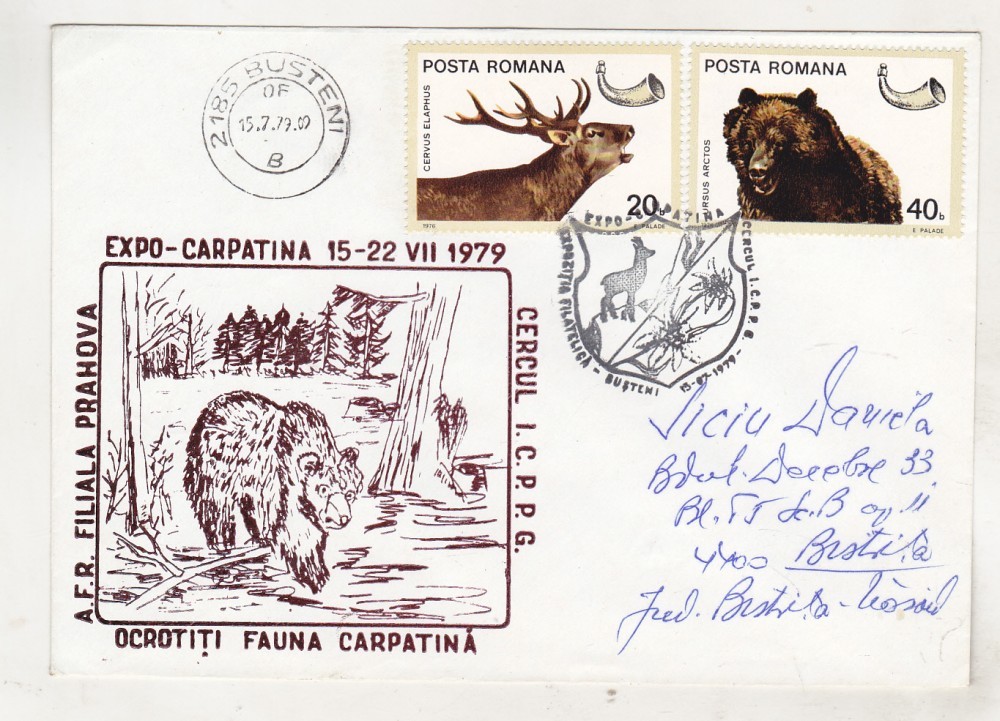 2185 BUSTENI
OF
15.7.79.09
B
POSTA ROMANA
CERVUS ELAPHUS
20b
1976
E. PALADE
POSTA ROMANA
URSUS ARCTOS
40b
E. PALADE
EXPO-CARPATINA
CERCUL I.C.P.P.G.
EXPOZIȚIA FILATELICĂ - BUȘTENI 15-07-1979-
EXPO-CARPATINA 15-22 VII 1979
A.F.R. FILIALA PRAHOVA
CERCUL I.C.P.P.G.
OCROTIȚI FAUNA CARPATINĂ
Daniela
Bdul. Decebre 33
Bl. Sc. B ap. 11
4400 Bistrita
Jud. Bistrita-Năsăud